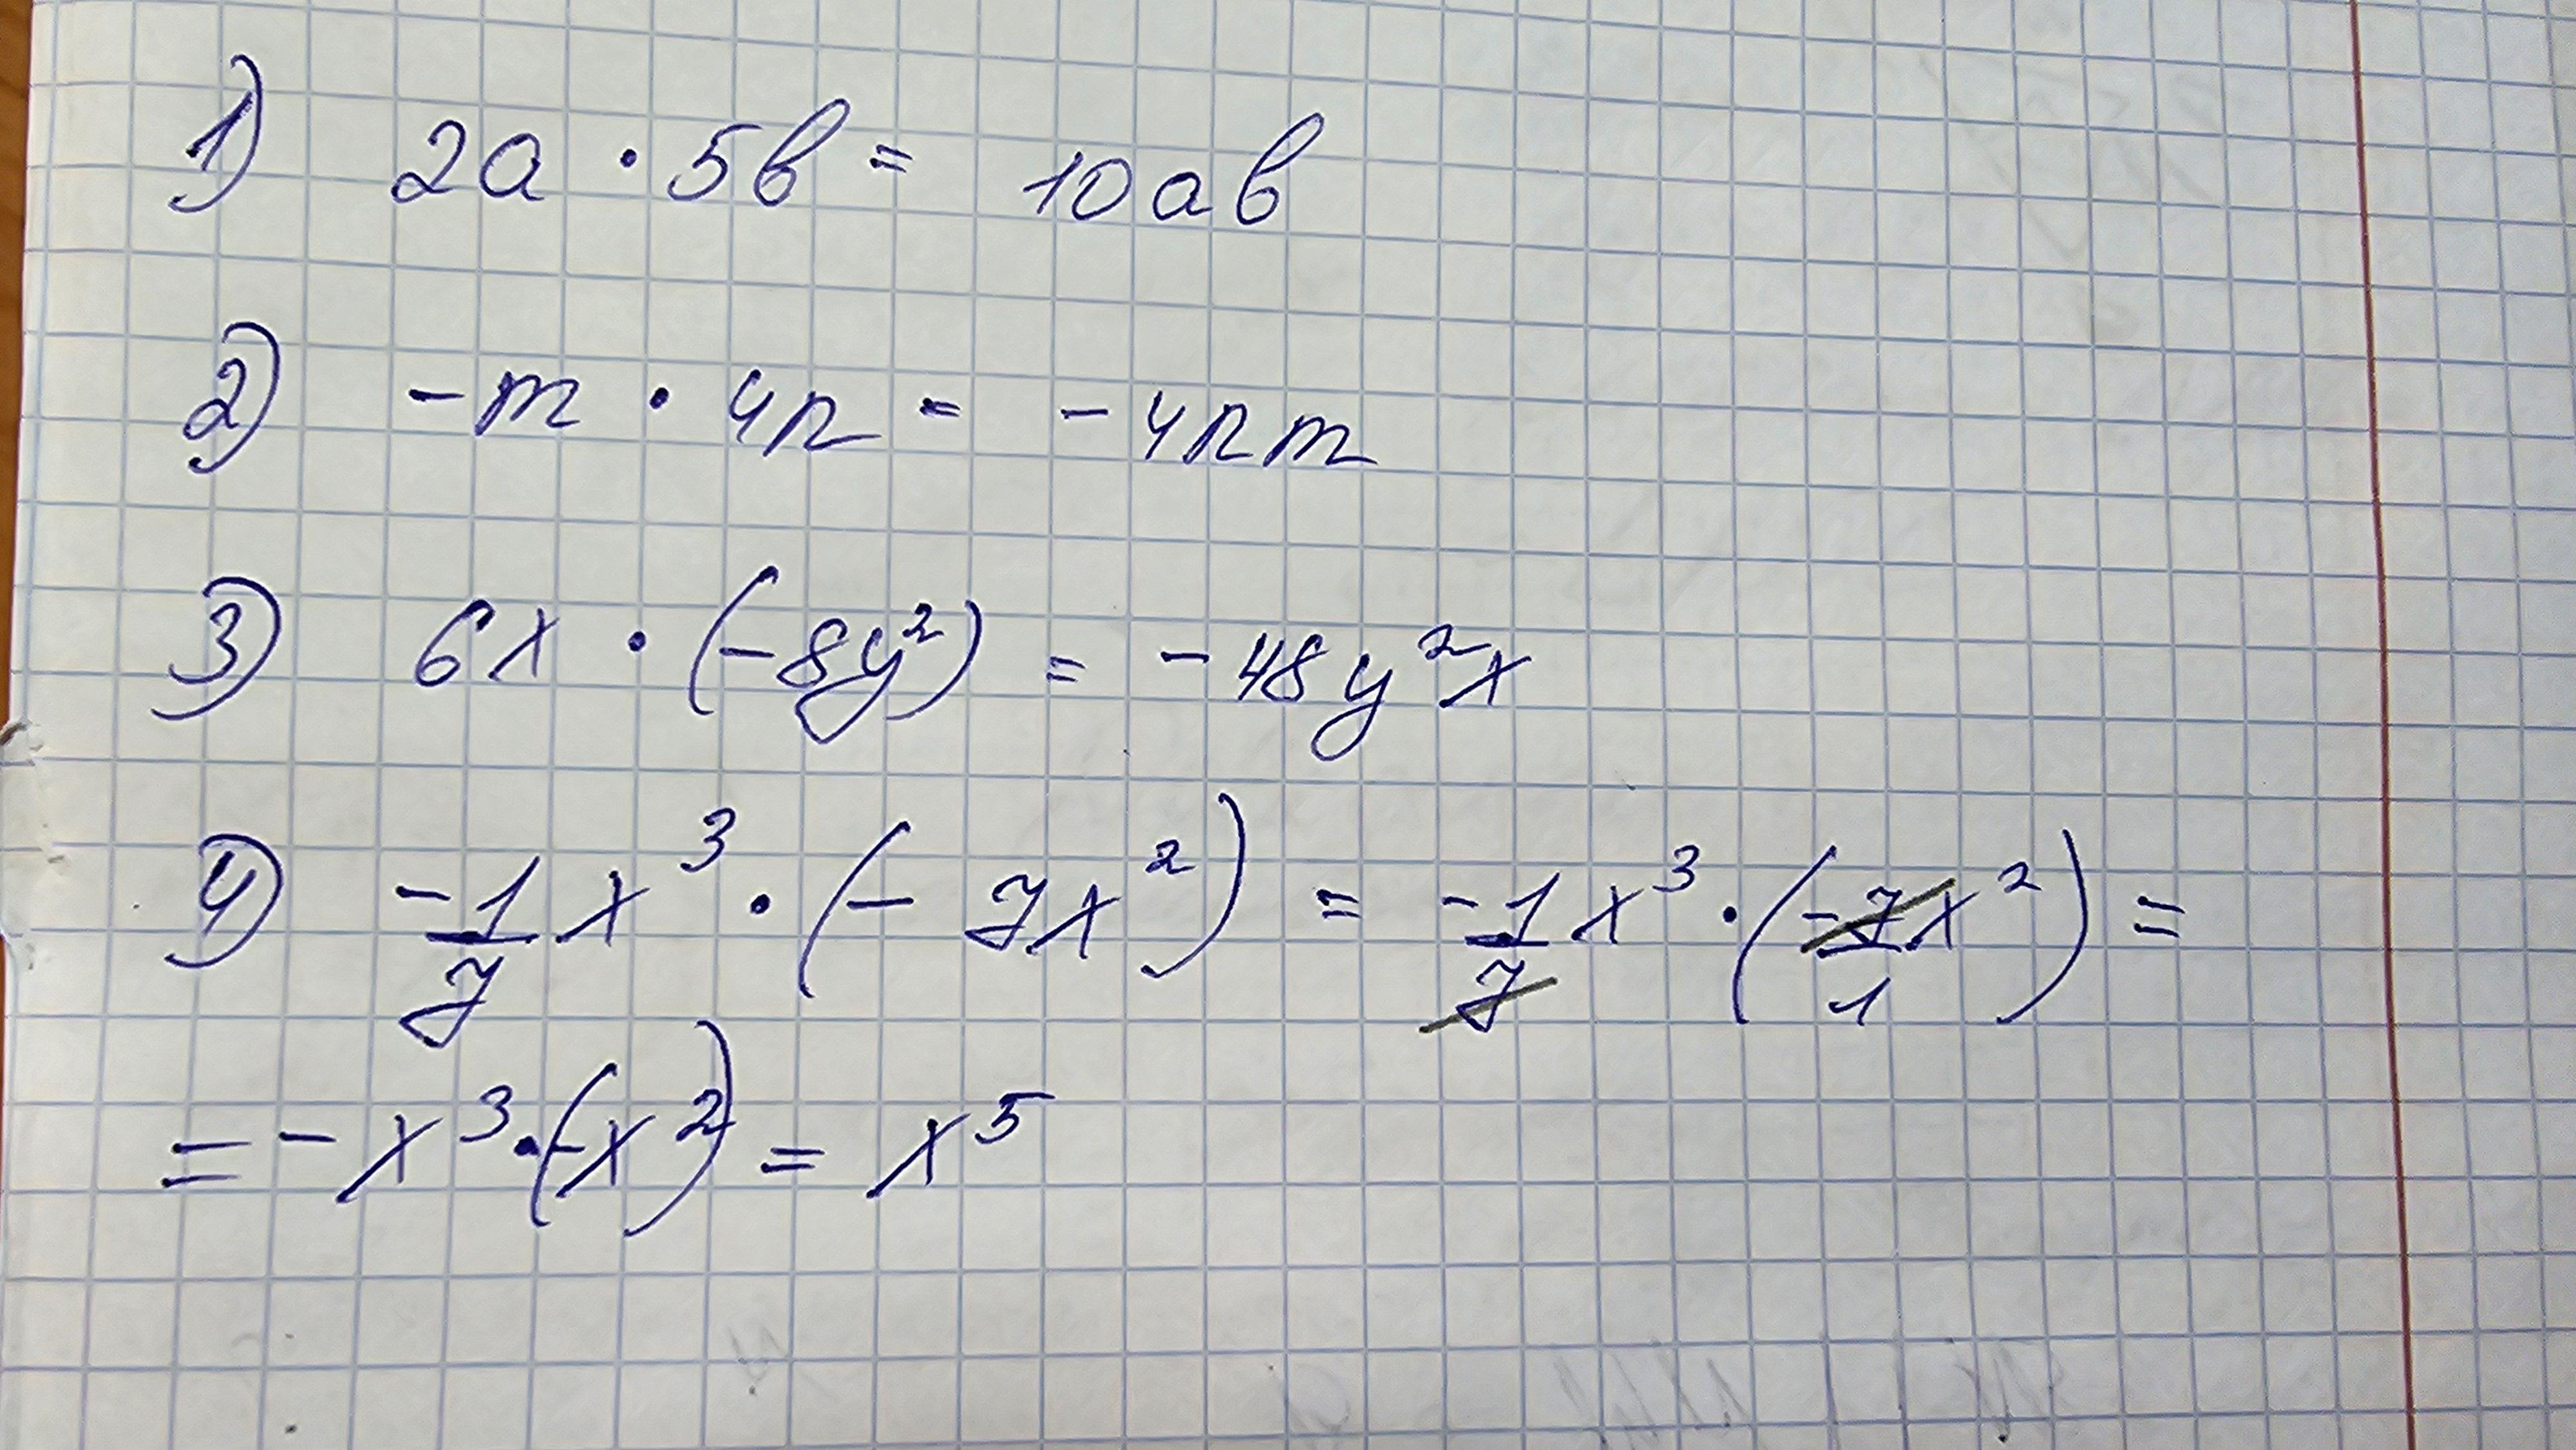 1) 2a · 5b = 10ab
2) -m · 4n = -4nm
3) 6x · (-8y²) = -48y²x
4) -1/7 x³ · (-7x²) = -1/7 x³ · (-7x²/1) =
= -x³·(-x²) = x⁵